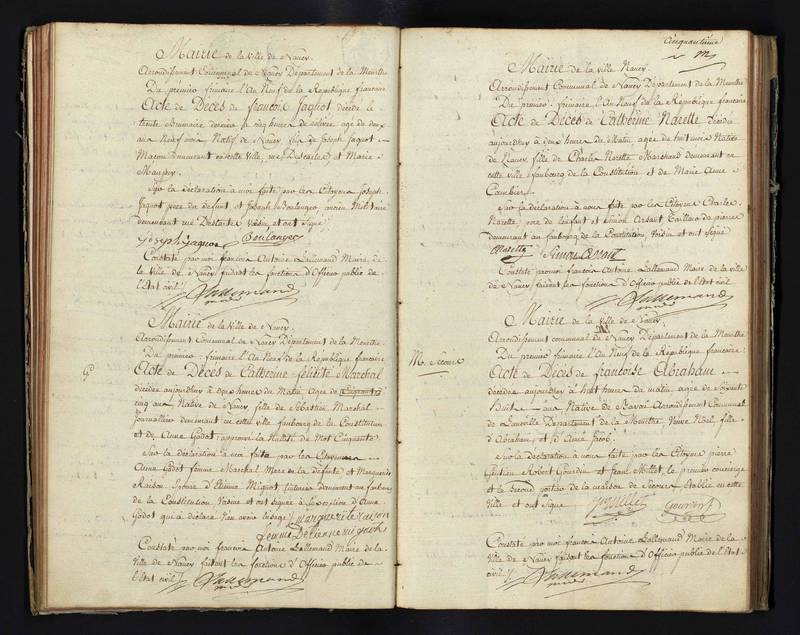 Mairie de la ville de Nancy.
Arrondissement Communal de Nancy Département de la Meurthe
Du premier frimaire l'An Neuf de la République francaise
Acte de Décès de francois Jaquot décédé le
trente Brumaire dernier a cinq heures de relevée agé de deux
ans Neuf mois Natif de Nancy fils de Joseph Jaquot
Macon demeurant en cette Ville, rue Descartes et Marie
Maupery.
Sur la déclaration à moi faite par les Citoyens Joseph
Jaquot pere du défunt et Joseph Boulanger, ancien Militaire
demeurant rue Descartes Voisin, et ont Signé
Joseph Jaquot Boulanger
Constaté par moi francois Antoine Lallemand Maire de
la Ville de Nancy faisant les fonctions d'Officier public de
l'Etat civil
Lallemand
Mairie de la Ville de Nancy.
Arrondissement Communal de Nancy Département de la Meurthe.
Du premier frimaire l'An Neuf de la République francaise
G
Acte de Décès de Catherine félicité Marchal
décédée aujourdhuy à deux heures du Matin Agée de Cinquante
cinq ans Native de Nancy fille de Sébastien Marchal
Journallier demeurant en cette ville faubourg de la Constitution
et de Anne Godot; approuvé la Nullité du Mot Cinquante
Sur la déclaration à moi faite par les Citoyennes
Anne Godot femme Marchal Mere de la défunte et Marguerite
Raison épouse d'Etienne Mignot demeurant au faubourg
de la Constitution Voisine et ont signée à l'exception d'Anne
Godot qui a déclaré n'en avoir l'usage marguerite raison
femme De Etienne mignot
Constaté par moi francois Antoine Lallemand Maire de la
Ville de Nancy faisant les fonctions d'Officier public de
l'Etat civil
Lallemand
Cinquantième
Mairie de la Ville Nancy.
Arrondissement Communal de Nancy Département de la Meurthe
Du premier frimaire, l'An Neuf de la République francaise
Acte de Décès de Catherine Narelle Décédée
aujourdhuy à deux heures du Matin, agée de huit mois Native
de Nancy, fille de Charles Narelle Marchand demeurant en
cette ville faubourg de la Constitution et de Marie Anne
Cambier.
Sur la déclaration à moi faite par les Citoyens Charles
Narelle pere de l'enfant et Simon Arsant Tailleur de pierres
demeurant au faubourg de la Constitution, Voisin et ont Signé
Narelle Simon Arsant
Constaté par moi francois Antoine Lallemand Maire de la ville
de Nancy faisant les fonctions d'Officier public de l'Etat civil
Lallemand
Mairie de la ville de Nancy.
Arrondissement communal de Nancy Département de la Meurthe
Du premier frimaire l'An Neuf de la République francaise.
Mn Secours
Acte de Décès de francoise Abraham
décédée aujourdhuy à huit heures du matin agée de Soixante
huit ans Native de Arrondissement Communal
de Lunéville Département de la Meurthe, Veuve Noël, fille
d'Abraham, et d'Anne Jacob.
Sur la déclaration à moi faite par les Citoyens pierre
Gantien Robert Gourdin et francois Millet, le premier concierge
et le Second portier de la maison de Secours établie en cette
Ville et ont Signé
Constaté par moi francois Antoine Lallemand Maire de la
Ville de Nancy faisant les fonctions d'Officier public de l'Etat
civil
Lallemand